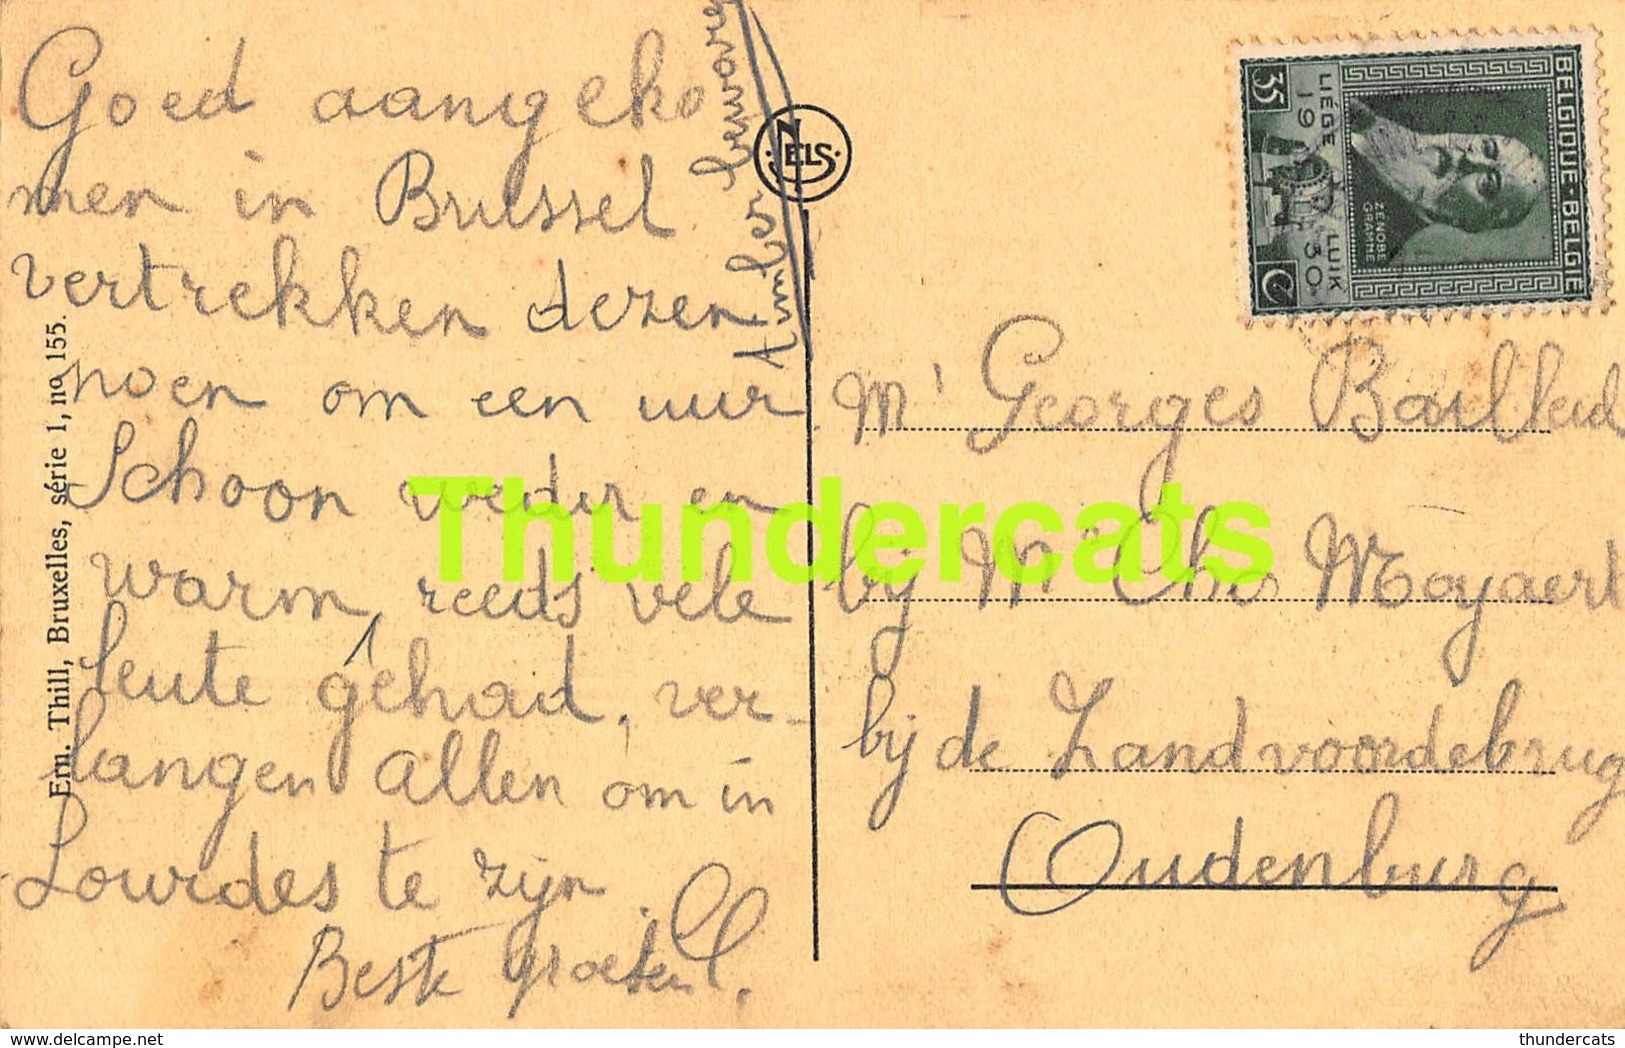 Goed aangeko
men in Brussel
vertrekken dezen
noen om een uur
Schoon weder en
warm, reeds vele
leute gehad, ver-
langen allen om in
Lourdes te zijn.
Beste groeten
NELS
Ern. Thill, Bruxelles, série 1, no 155.
BELGIQUE-BELGIE
ZENOBE
GRAMME
LIÉGE LUIK
1930
35 C
Mr Georges
bij Mr Ch. Moyaert
bij de Zandvoordebrug
Oudenburg
Thundercats
delcampe.net
thundercats